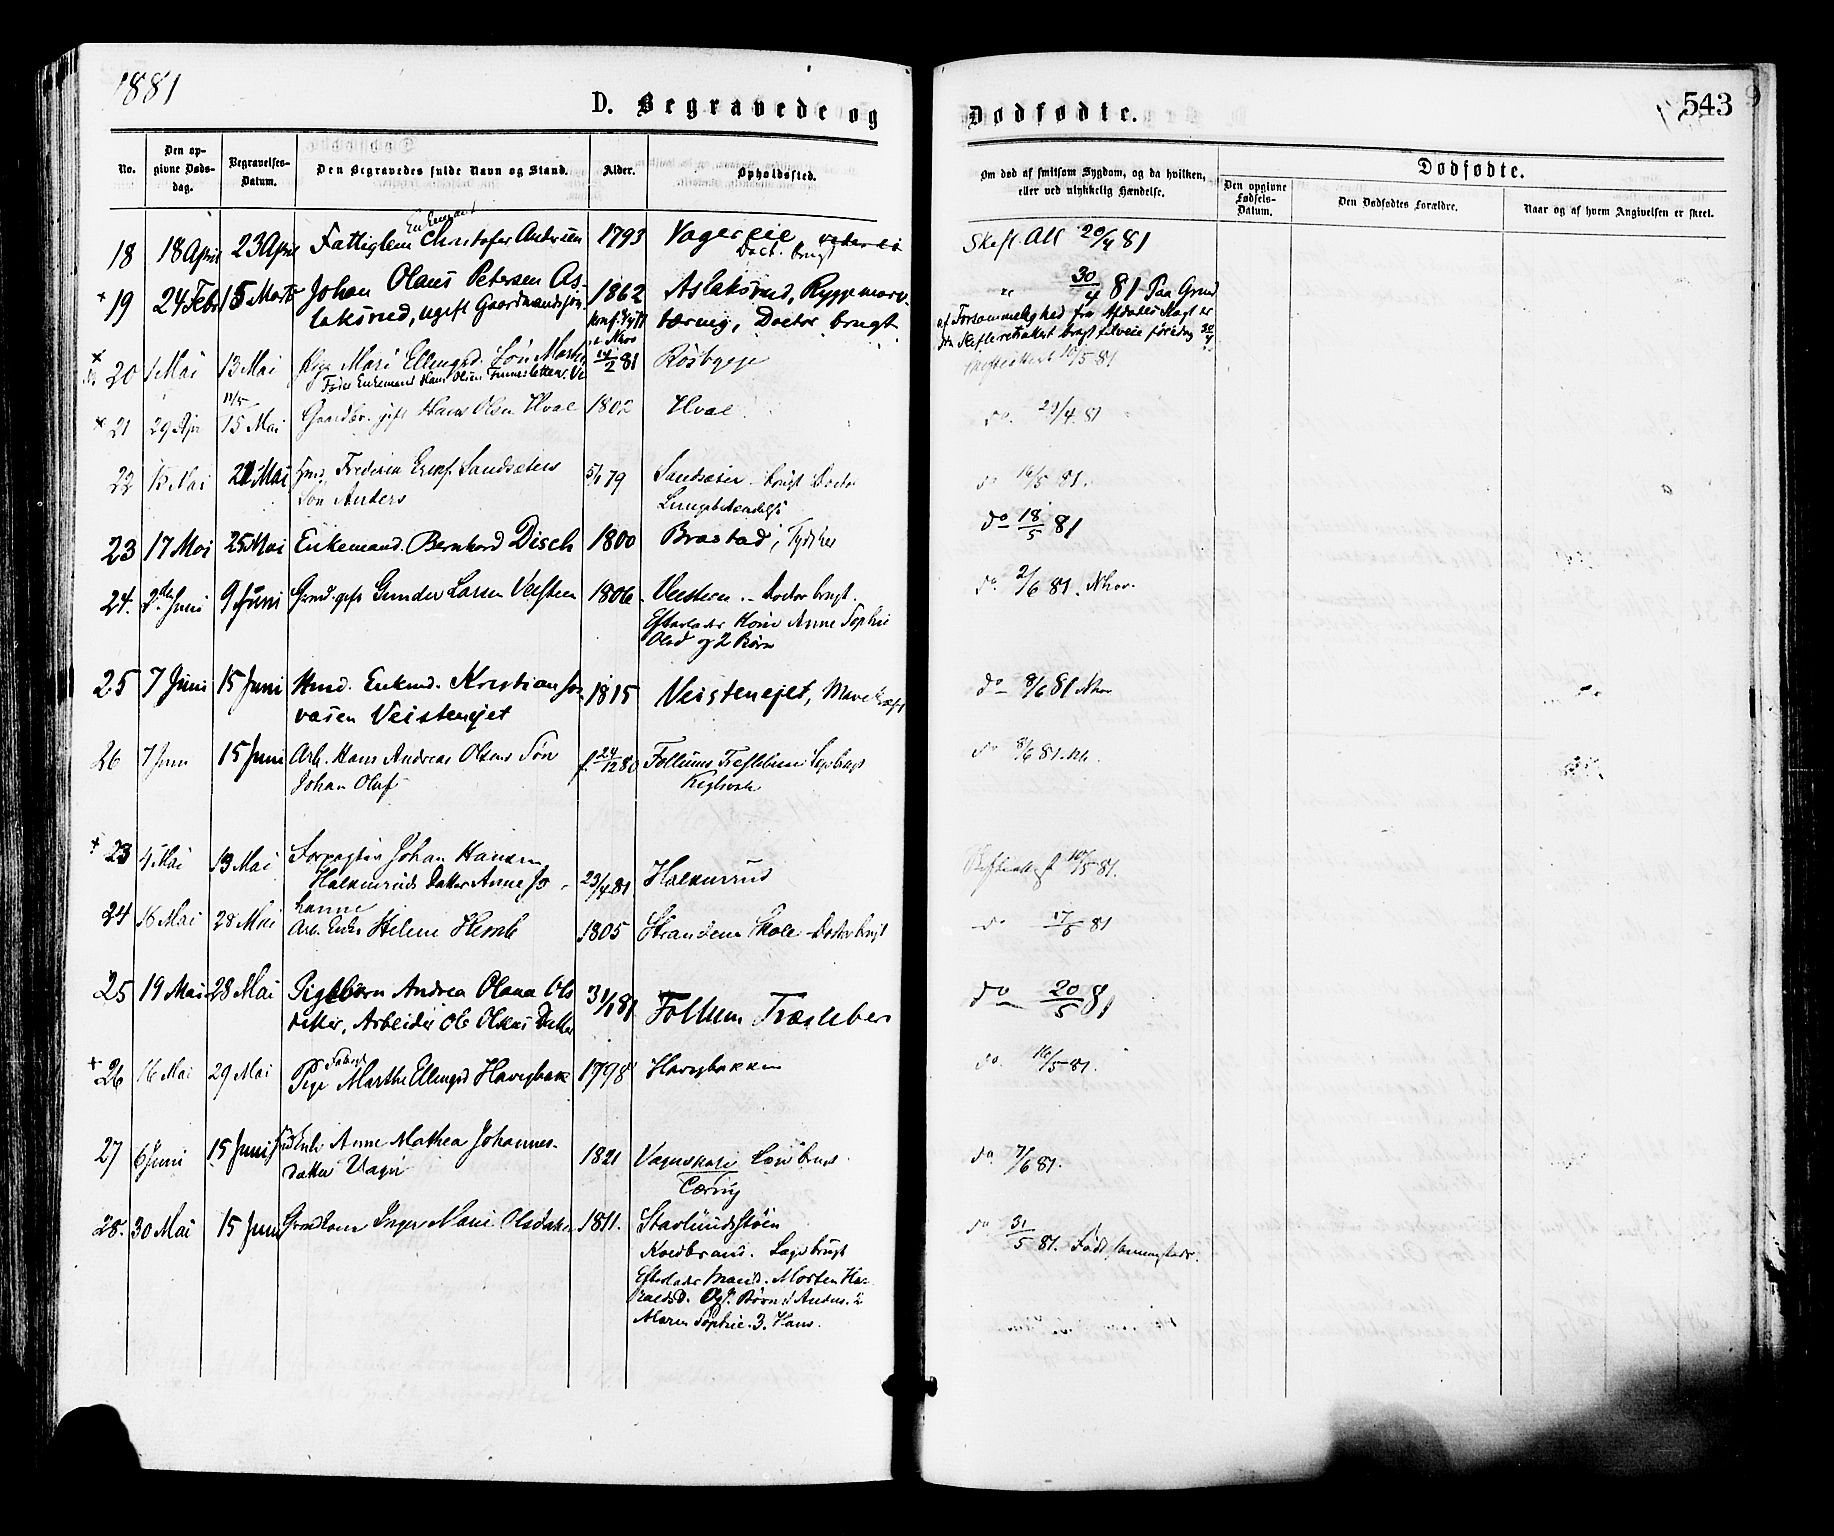 1881
D. Begravede og
Dødfødte.
543
No.
Den opgivne Døds-dag.
Begravelses-Datum.
Den Begravedes fulde Navn og Stand.
Alder.
Opholdssted.
Om død af smitsom Sygdom, og da hvilken,
eller ved ulykkelig Hændelse.
Dødfødte.
Den opgivne Fødsels-Datum.
Den Dødfødtes Forældre.
Naar og af hvem Angivelsen er skeet.
Enkemand
18 18 April 23 April Fattiglem Christofer Andersen 1793 Vagereie
Doct. brugt
Skeft. Att 20/4 81
19 24 Febr 15 Marts Johan Olaus Petersen As-
laksrud, ugift Gaardmandssøn 1862 Aslaksrud, Ryggemarv-
tæring, Doctor brugt
" 30/4 81 Paa Grund
af Forsømmelighed fra Afdødes Slægt er
20 1 Mai 13 Mai Pige Mari Ellingsd. Søn Martin 14/2 81 Røsbygge
Fader Enkemand Hans Olsen
10/5 81
11/5
21 29 Apr 15 Mai Gaardbr. gift Hans Olsen Hval 1802 Hval
do. 29/4 81
22 15 Mai 21 Mai Frederik Sandsæters
Søn Anders 5/1 79 Sandsæter brugt Doctor
Lungebetændelse
do 16/5 81.
23 17 Mai 25 Mai Enkemand. Bernhard Disch 1800 Brastad, Tydsker
do 18/5 81
24. 2den Juni 9 Juni Grmd. gift Gunder Larsen Veisteen 1806 Veisteen - Doctor brugt.
Efterlader Kone Anne Sophie
Olsd og 2 Børn
do 2/6 81. Nhov.
25 7 Juni 15 Juni Hmd. Enkmd. Kristian Jo-
vasen Veistenejet 1815 Veistenejet, Mavekræft
do 8/6 81 Nhov
26 7 Juni 15 Juni Arb. Hans Andreas Olsens Søn
Johan Oluf f. 24/12 80 Follums Træsliberi Lægebrugt
Kighoste
do 8/6 81. Nh.
23 4 Mai 13 Mai Forpagter Johan Hansen
Halkinruds Datter Anne Jo-
hanne 23/4 81 Halkinrud
10/5 81.
24 16 Mai 28 Mai Arb. Enke Helene 1805 Strandens Skole Doctor brugt
do 17/5 81
25 19 Mai 28 Mai Pigebarn Andrea Olava Ols
datter, Arbeider Ole Olsens Datter 31/1 81 Follum Træsliberi
do 20/5 81
26 16 Mai 29 Mai Pige Marthe Ellingsd Haversbak 1798 Haversbakken
do. 16/5 81.
27 6 Juni 15 Juni Enke Anne Mathea Johannes-
datter Vager 1821 Vagerskole Læge brugt
Tæring
do. 7/6 81.
28. 30 Mai 15 Juni Grmdkone Inger Marie Olsdatter 1811. Stavlundsstøen
Koldbrand. Læge brugt
Efterlader Mand. Morten Ha-
raldsd. Og Børn 1 Anders. 2
Maren Sophie. 3. Hans.
do 31/5 81. Født sammesteds.